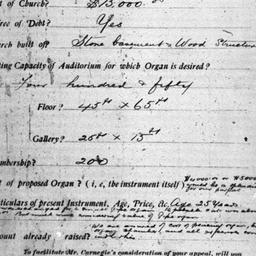 t of Church? $15,000.00
ree of Debt? Yes
urch built of? Stone basement & Wood Structure
ting Capacity of Auditorium for which Organ is desired?
Four hundred & fifty
Floor? 45ft x 65ft
Gallery? 25ft x 15ft
mbership? 200
t of proposed Organ? (i, e, the instrument itself) $4000.00 or $5000
would be a splendid
for our purpose
ticulars of present Instrument, Age, Price, &c. Age 25 Years
ount already raised?
To facilitate Mr. Carnegie's consideration of your appeal, will you